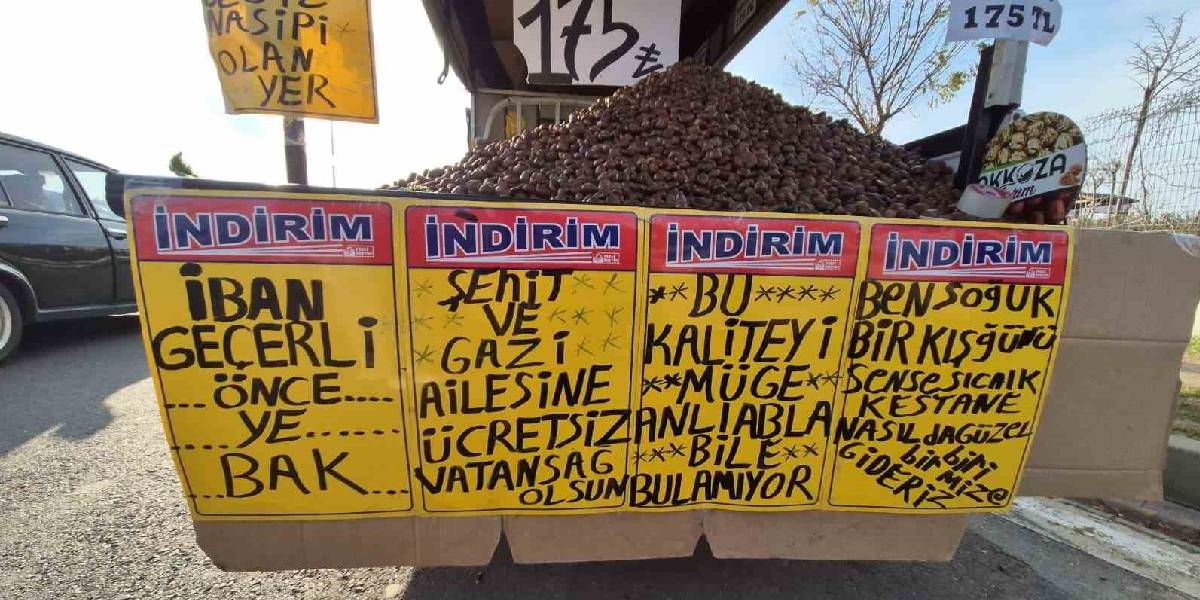 NASİPİ
OLAN
YER
175 ₺
175 TL
KKOZA
İNDİRİM
İBAN
GEÇERLİ
...ÖNCE.....
.....YE.......
...BAK....
İNDİRİM
*ŞEHİT*
**VE**
*GAZİ**
AİLESİNE
ÜCRETSİZ
VATANSAG
OLSUN
İNDİRİM
**BU****
KALİTEYİ
**MÜGE**
ANLIABLA
**BİLE**
BULAMIYOR
İNDİRİM
BEN SOĞUK
BİR KIŞ GÜNÜ
SENSE SICAK
KESTANE
NASIL DA GÜZEL
BİRİ
BİRİMİZE
GİDERİZ